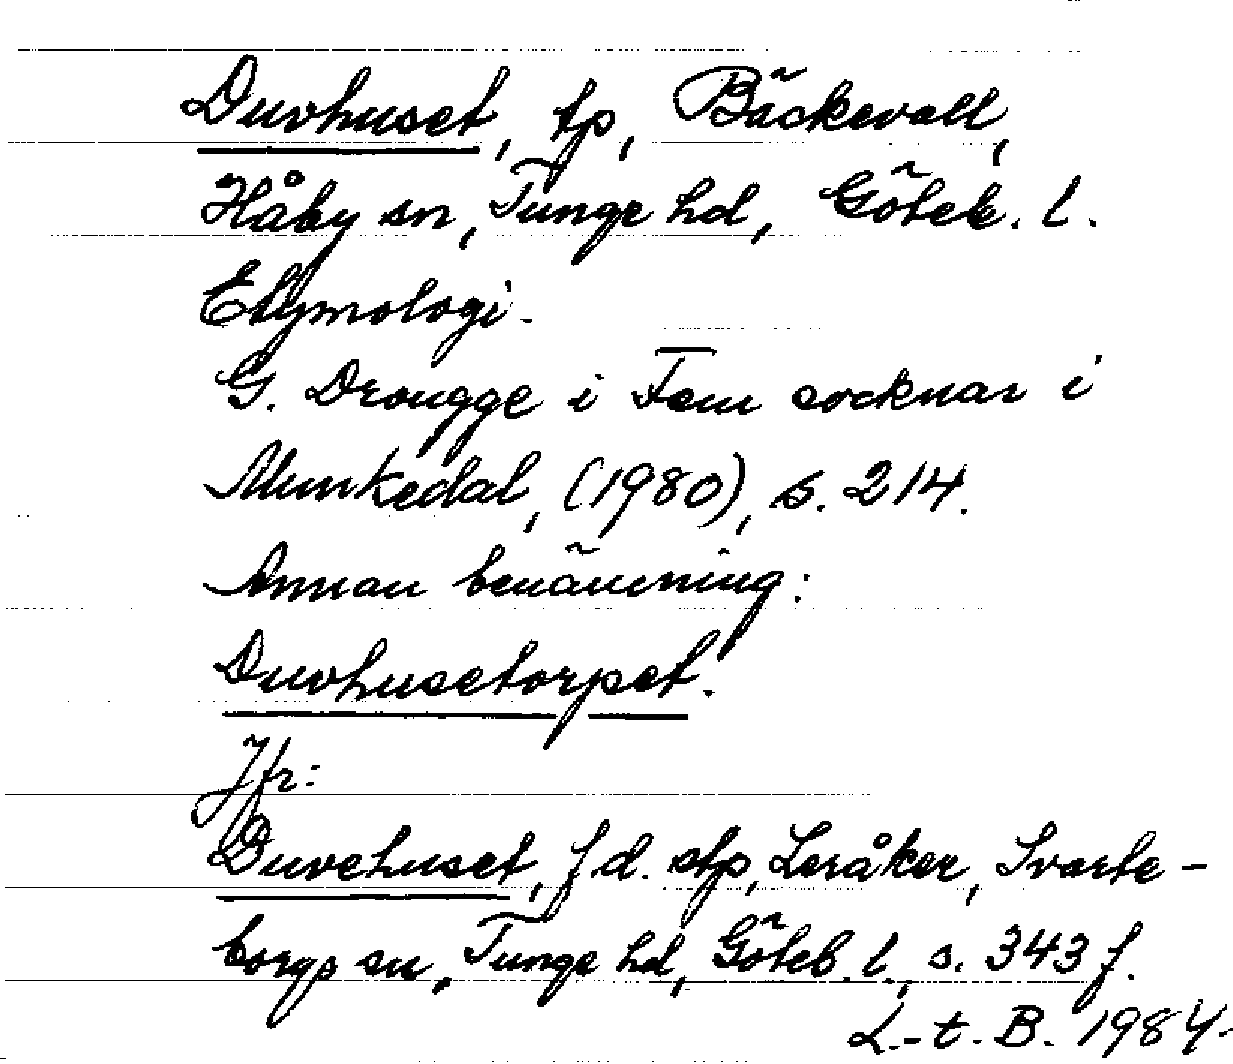 Duvhuset, tp, Bäckevall,
Håby sn, Tunge hd, Göteb. l.
Etymologi.
G. Drougge i Fem socknar i
Munkedal, (1980), s. 214.
Annan benämning:
Duvhusetorpet.
Jfr:
Duvehuset, f d. stp, Leråker, Svarte-
borgs sn, Tunge hd, Göteb. l., s. 343 f.
L.-t. B. 1984.